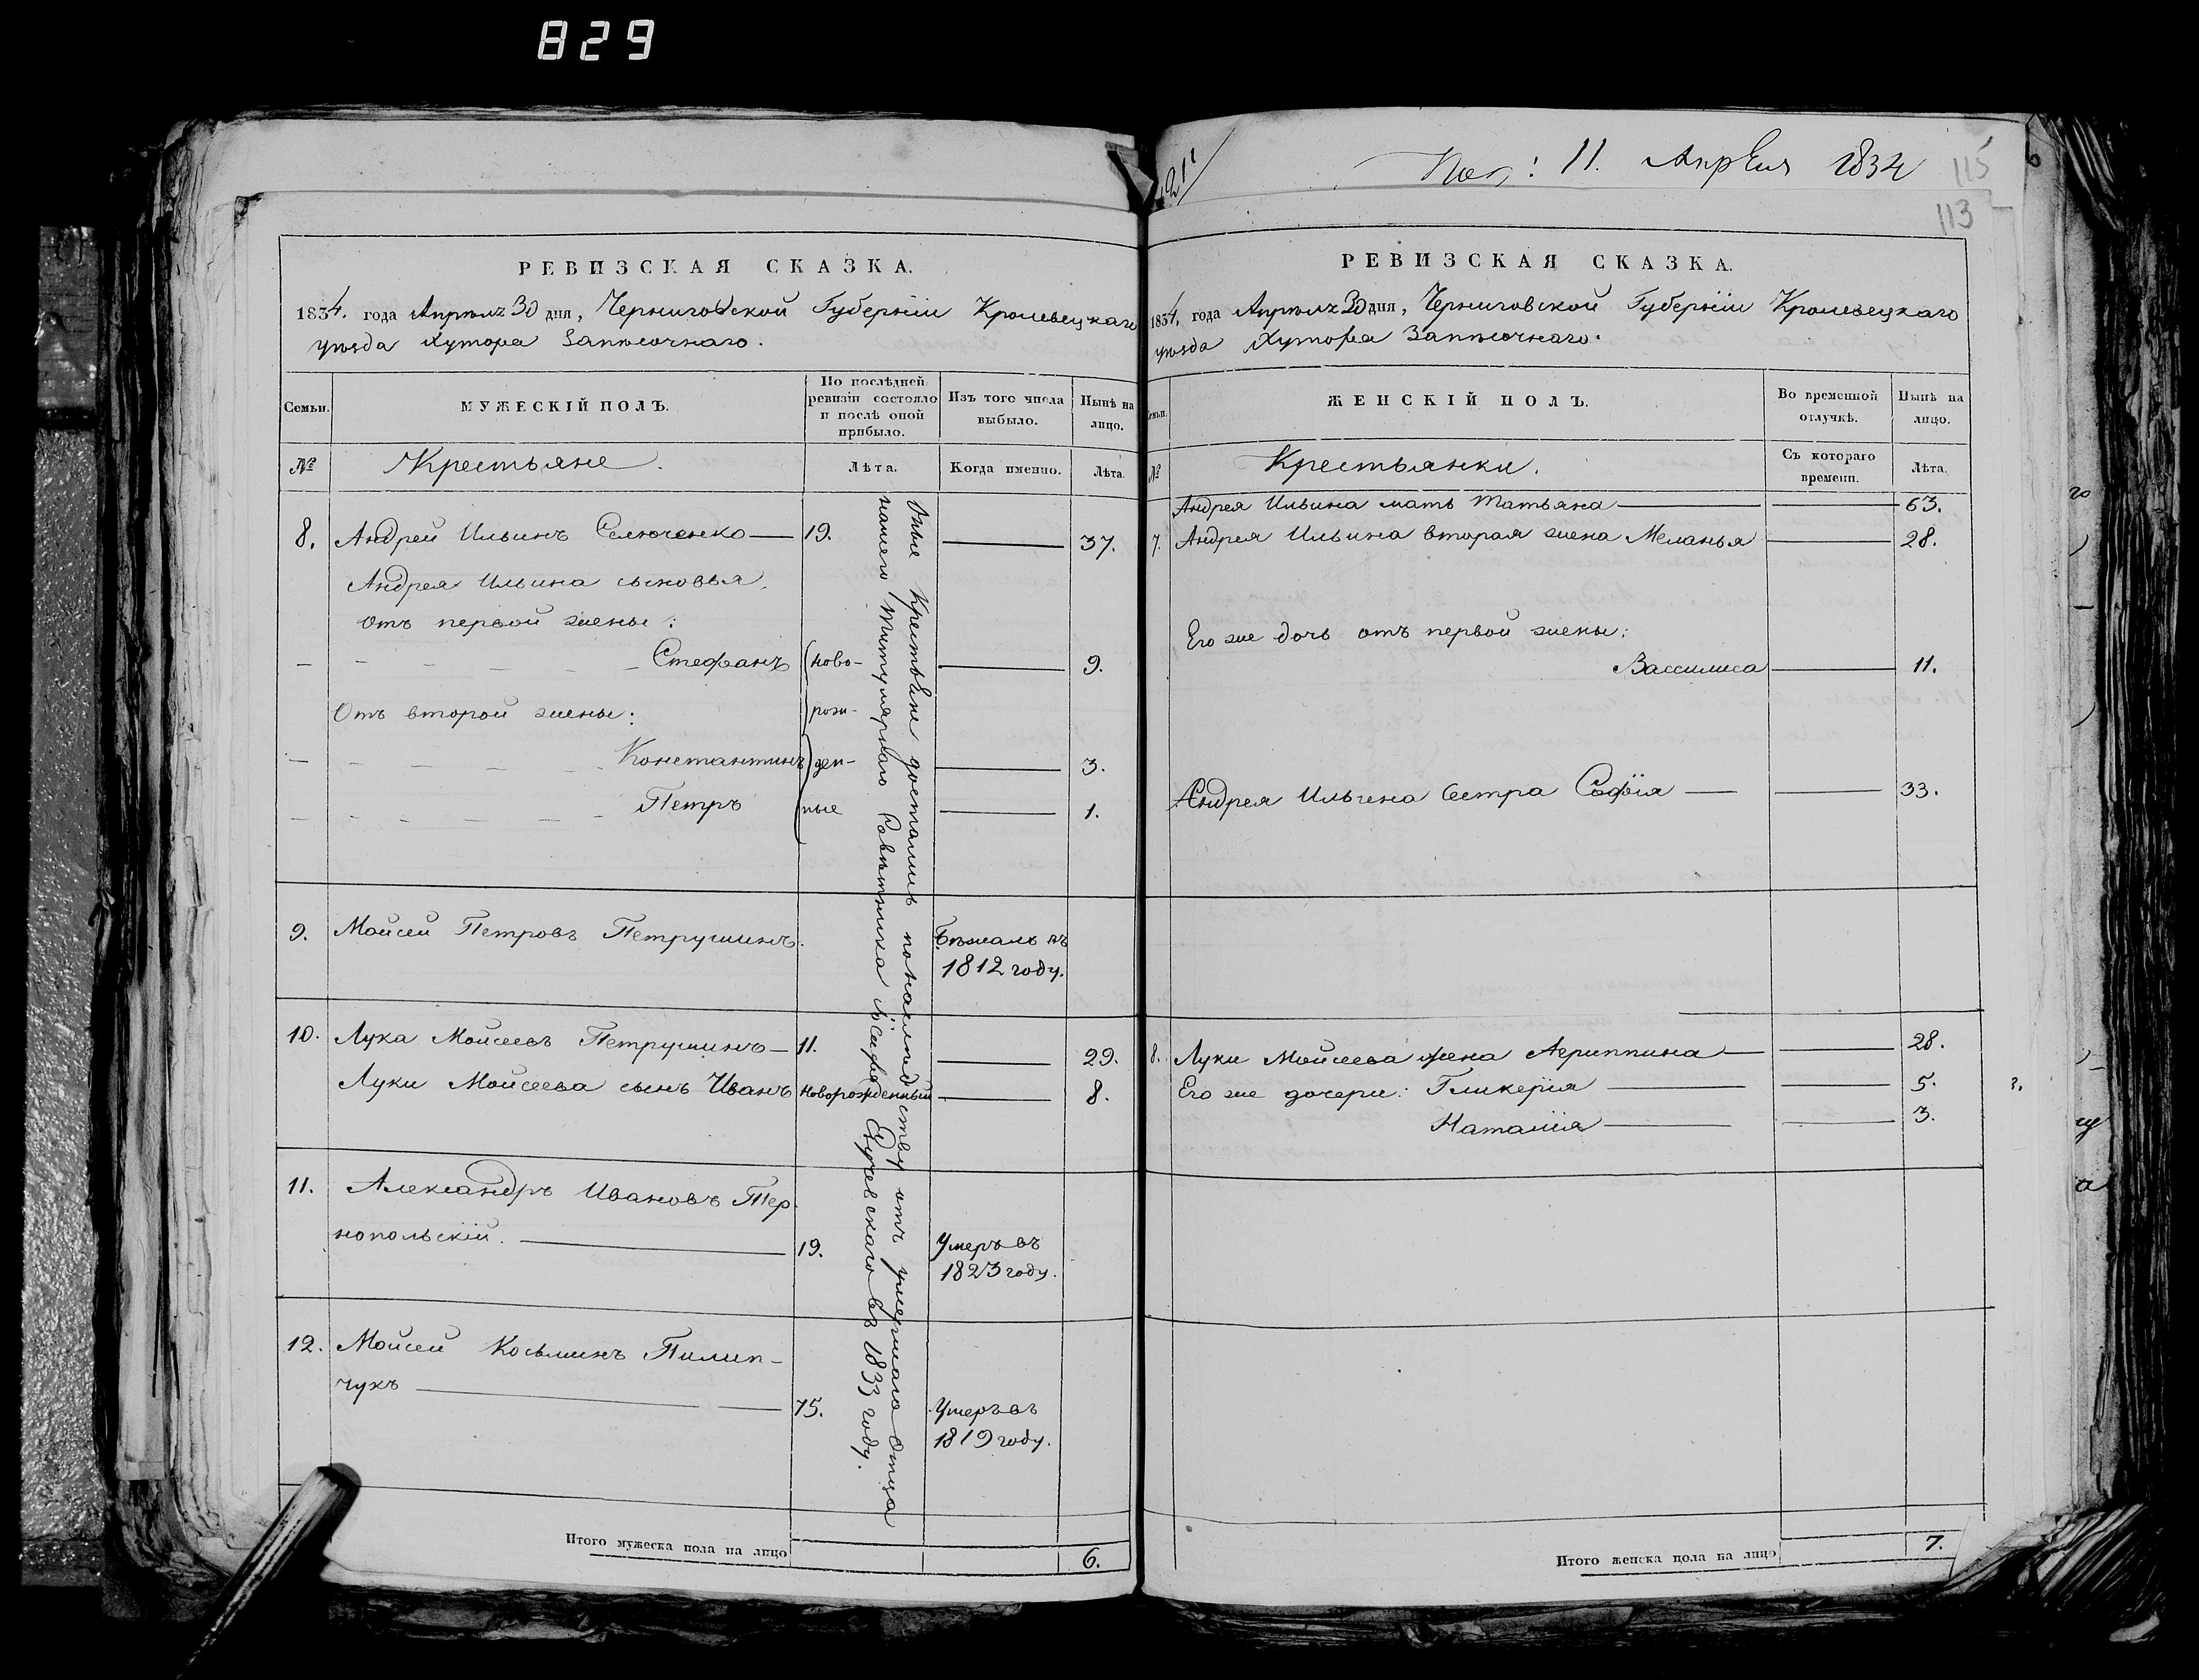 829
11. Апреля 1834
115
113
РЕВИЗСКАЯ СКАЗКА.
1834. года Апреля 30 дня, Черниговской Губернiи Кролевецкаго
уѣзда Хутора Запѣсочнаго.
Семьи.
МУЖЕСКІЙ ПОЛЪ.
По послѣдней ревизіи состояло и послѣ оной прибыло.
Изъ того числа выбыло.
Нынѣ на лицо.
№
Крестьяне.
Лѣта.
Когда именно.
Лѣта.
8. Андрей Ильинъ Селюченко — 19. — 37.
Андрея Ильина сыновья
отъ первой жены:
Стефанъ ново- — 9.
Отъ второй жены: рож-
Константинъ ден- — 3.
Петръ ные — 1.
9. Мойсей Петровъ Петрушинъ. Бѣжалъ въ
1812 году.
10. Лука Мойсеевъ Петрушинъ — 11. — 29.
Луки Мойсеева сынъ Иванъ новорожденный — 8.
11. Александръ Ивановъ Тер-
нопольскій. — 19. Умеръ въ
1823 году.
12. Мойсей Косьминъ Пилип-
чукъ — 75. Умеръ въ
1819 году.
Оные Крестьяне достались по наслѣдству отъ умершаго Отца
нашего Титулярнаго Совѣтника Іосифа въ 1833 году.
Итого мужеска пола на лицо 6.
РЕВИЗСКАЯ СКАЗКА.
1834. года Апреля 30 дня, Черниговской Губернiи Кролевецкаго
уѣзда Хутора Запѣсочнаго.
Семьи.
ЖЕНСКІЙ ПОЛЪ.
Во временной отлучкѣ.
Нынѣ на лицо.
№
Крестьянки.
Съ котораго времени.
Лѣта.
Андрея Ильина мать Татьяна — 63.
7. Андрея Ильина вторая жена Меланья — 28.
Его же дочь отъ первой жены:
Вассилиса — 11.
Андрея Ильина Сестра Софія — 33.
8. Луки Мойсеева жена Агриппина — 28.
Его же дочери: Гликерія — 5.
Наталія — 3.
Итого женска пола на лицо 7.